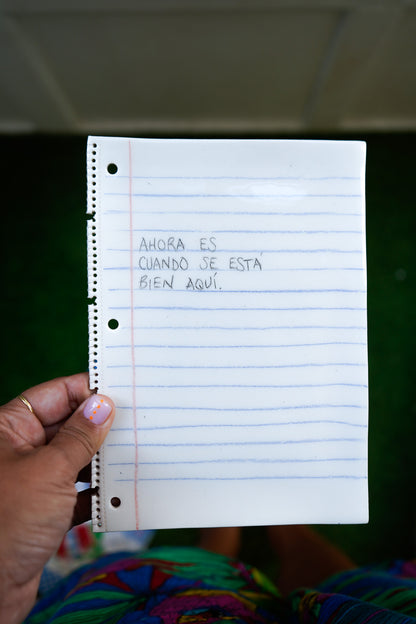 AHORA ES
CUANDO SE ESTÁ
BIEN AQUÍ.